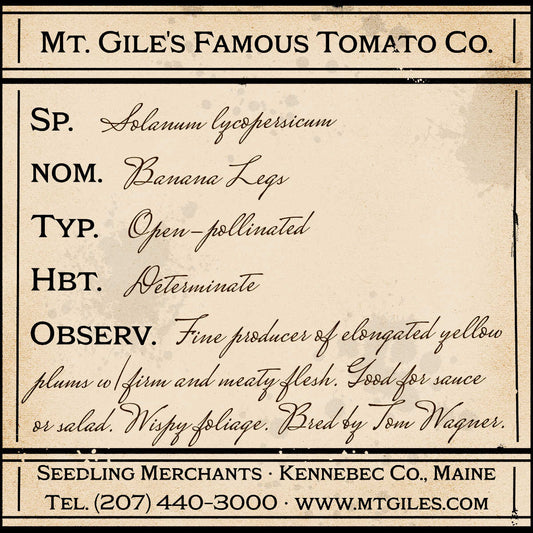 Mt. Gile's Famous Tomato Co.
Sp. Solanum lycopersicum
nom. Banana Legs
Typ. Open-pollinated
Hbt. Determinate
Observ. Fine producer of elongated yellow
plums w/ firm and meaty flesh. Good for sauce
or salad. Wispy foliage. Bred by Tom Wagner.
Seedling Merchants · Kennebec Co., Maine
Tel. (207) 440-3000 · www.mtgiles.com